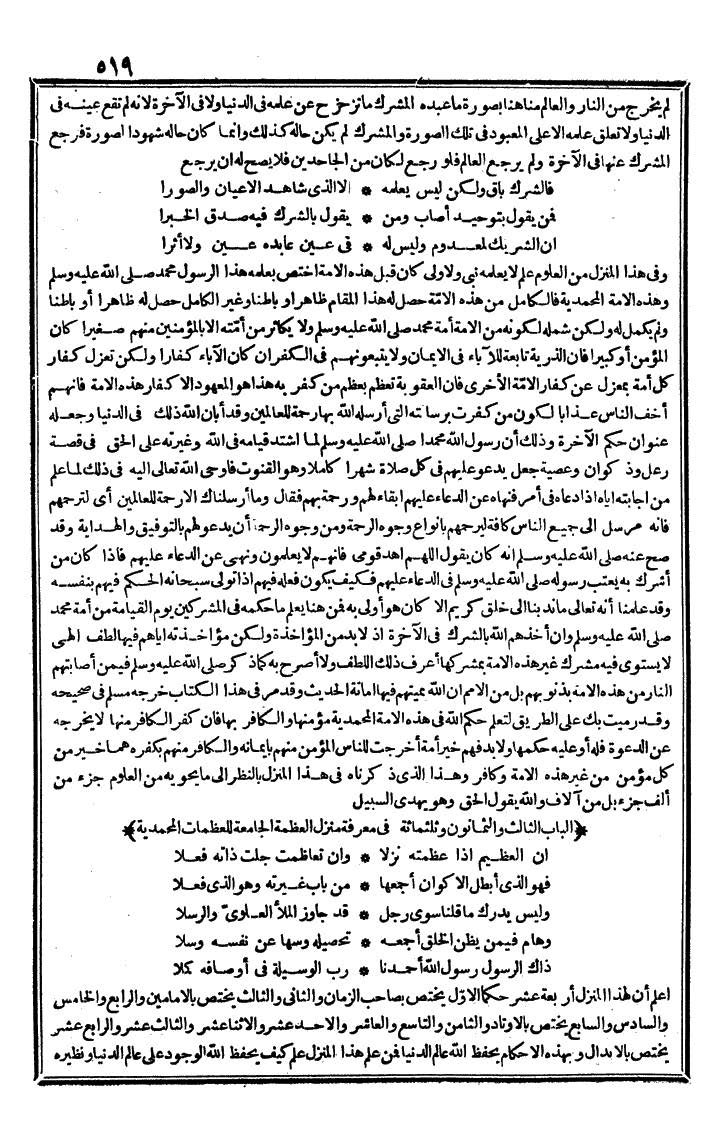 ٥١٩
لم يخرج من النار والعالم منا هنا بصورة ما عبده المشرك ما تزحزح عن علمه فى الدنيا ولا فى الآخرة لانه لم تقع عينه فى
الدنيا ولا تعلق علمه الا على المعبود فى تلك الصورة والمشرك لم يكن حاله كذلك وانما كان حاله شهود الصورة فرجع
المشرك عنها فى الآخرة ولم يرجع العالم فلو رجع لكان من الجاحدين فلا يصح له ان يرجع
فالشرك باق ولكن ليس يعلمه * الا الذى شاهد الاعيان والصورا
فمن يقول بتوحيد أصاب ومن * يقول بالشرك فيه صدق الخبرا
ان الشريك لمعدوم وليس له * فى عين عابده عين ولا أثرا
وفى هذا المنزل من العلوم علم لا يعلمه نبى ولا ولى كان قبل هذه الامة اختص بعلمه هذا الرسول محمد صلى الله عليه وسلم
وهذه الامة المحمدية فالكامل من هذه الامّة حصل له هذا المقام ظاهرا وباطنا وغير الكامل حصل له ظاهرا أو باطنا
ولم يكمل له ولكن شمله لكونه من الامة أمة محمد صلى الله عليه وسلم ولا يكاثر من أمّته الا بالمؤمنين منهم صغيرا كان
المؤمن أو كبيرا فان الذرية تابعة للآباء فى الايمان ولا يتبعونهم فى الكفران كان الآباء كفارا ولكن تعزل كفار
كل أمة بمعزل عن كفار الامّة الأخرى فان العقوبة تعظم بعظم من كفر به هذا هو المعهود الا كفار هذه الامة فانهم
أخف الناس عذابا لكون من كفرت برسالته التى أرسله الله بها رحمة للعالمين وقد أبان الله ذلك فى الدنيا وجعله
عنوان حكم الآخرة وذلك أن رسول الله محمدا صلى الله عليه وسلم لما اشتد قيامه فى الله وغيرته على الحق فى قصة
رعل وذكوان وعصية جعل يدعو عليهم فى كل صلاة شهرا كاملا وهو القنوت فاوحى الله تعالى اليه فى ذلك لما علم
من اجابته اياه اذا دعاه فى أمر فنهاه عن الدعاء عليهم ابقاء لهم ورحمة بهم فقال وما أرسلناك الا رحمة للعالمين أى لترحمهم
فانه مرسل الى جميع الناس كافة ليرحمهم بانواع وجوه الرحمة ومن وجوه الرحمة أن يدعو لهم بالتوفيق والهداية وقد
صح عنه صلى الله عليه وسلم انه كان يقول اللهم اهد قومى فانهم لا يعلمون ونهى عن الدعاء عليهم فاذا كان من
أشرك به يعتب رسوله صلى الله عليه وسلم فى الدعاء عليهم فكيف يكون فعله فيهم اذا تولى سبحانه الحكم فيهم بنفسه
وقد علمنا أنه تعالى ما ندبنا الى خلق كريم الا كان هو أولى به فمن هنا يعلم ما حكمه فى المشركين يوم القيامة من أمة محمد
صلى الله عليه وسلم وان أخذهم الله بالشرك فى الآخرة اذ لا بد من المؤاخذة ولكن مؤاخذته اياهم فيها لطف الهى
لا يستوى فيه مشرك غير هذه الامة بمشركها أعرف ذلك اللطف ولا أصرح به كما ذكر صلى الله عليه وسلم فيمن أصابتهم
النار من هذه الامة بذنوبهم بل من الامم ان الله يميتهم فيها اماتة الحديث وقد مر فى هذا الكتاب خرجه مسلم فى صحيحه
وقد رميت بك على الطريق لتعلم حكم الله فى هذه الامة المحمدية مؤمنها والكافر بها فان كفر الكافر منها لا يخرجه
عن الدعوة فله أو عليه حكمها ولا بد فهم خير أمة أخرجت للناس المؤمن منهم بايمانه والكافر منهم بكفره هما خير من
كل مؤمن من غير هذه الامة وكافر وهذا الذى ذكرناه فى هذا المنزل بالنظر الى ما يحويه من العلوم جزء من
ألف جزء بل من آلاف والله يقول الحق وهو يهدى السبيل
﴿الباب الثالث والثمانون وثلثمائة فى معرفة منزل العظمة الجامعة للعظمات المحمدية﴾
ان العظيم اذا عظمته نزلا * وان تعاظمت جلت ذاته فعلا
فهو الذى أبطل الاكوان أجمعها * من باب غيرته وهو الذى فعلا
وليس يدرك ما قلنا سوى رجل * قد جاوز الملأ العلوىّ والرسلا
وهام فيمن يظن الخلق أجمعه * تحصيله وسها عن نفسه وسلا
ذاك الرسول رسول الله أحمدنا * رب الوسيلة فى أوصافه كملا
اعلم أن لهذا المنزل أربعة عشر حكما الاوّل يختص بصاحب الزمان والثانى والثالث يختص بالامامين والرابع والخامس
والسادس والسابع يختص بالاوتاد والثامن والتاسع والعاشر والاحد عشر والاثنا عشر والثالث عشر والرابع عشر
يختص بالابدال وبهذه الاحكام يحفظ الله عالم الدنيا فمن علم هذا المنزل علم كيف يحفظ الله الوجود على عالم الدنيا ونظيره